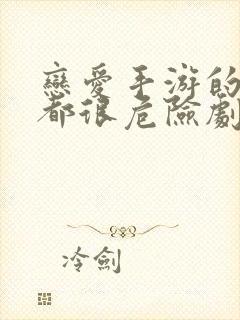 戀愛手游的
都很危險劇
冷劍